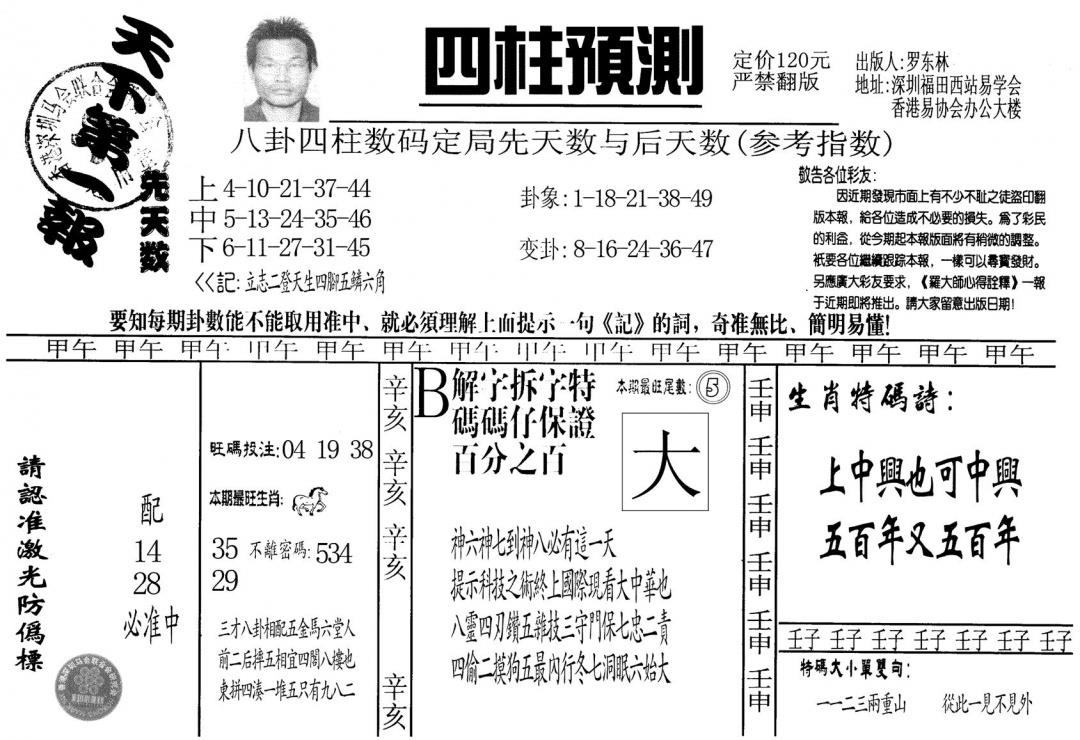 天下第一報
四柱預測
定价120元
严禁翻版
出版人:罗东林
地址:深圳福田西站易学会
香港易协会办公大楼
八卦四柱数码定局先天数与后天数(参考指数)
先天数
上4-10-21-37-44
中5-13-24-35-46
下6-11-27-31-45
<<記:立志二登天生四腳五鱗六角
卦象:1-18-21-38-49
变卦:8-16-24-36-47
敬告各位彩友:
因近期發現市面上有不少不耻之徒盜印翻
版本報，給各位造成不必要的損失。爲了彩民
的利益，從今期起本報版面將有稍微的調整。
衹要各位繼續跟踪本報，一樣可以尋寶發財。
另應廣大彩友要求，《羅大師心得詮釋》一報
于近期即將推出。請大家留意出版日期!
要知每期卦數能不能取用准中、就必須理解上面提示一句《記》的詞，奇准無比、簡明易懂!
甲午 甲午 甲午 甲午 甲午 甲午 甲午 甲午 甲午 甲午 甲午 甲午 甲午 甲午 甲午
請認准激光防僞標
配
14
28
必准中
旺碼投注:04 19 38
本期最旺生肖:
35 不離密碼:534
29
三才八卦相配五金馬六堂人
前二后摔五相宜四閣八樓也
東拼四湊一堆五只有九八二
辛亥
辛亥
辛亥
辛亥
B解字拆字特
碼碼仔保證
百分之百
本期最旺尾數:5
大
神六神七到神八必有這一天
提示科技之術終上國際現看大中華也
八靈四刃鑽五雜技三守門保七忠二責
四偷二摸狗五最內行冬七洞眠六始大
壬申
壬申
壬申
壬申
壬申
壬申
生肖特碼詩:
上中興也可中興
五百年又五百年
壬子 壬子 壬子 壬子 壬子 壬子 壬子
特碼大小單雙句:
一一二三兩重山 從此一見不見外